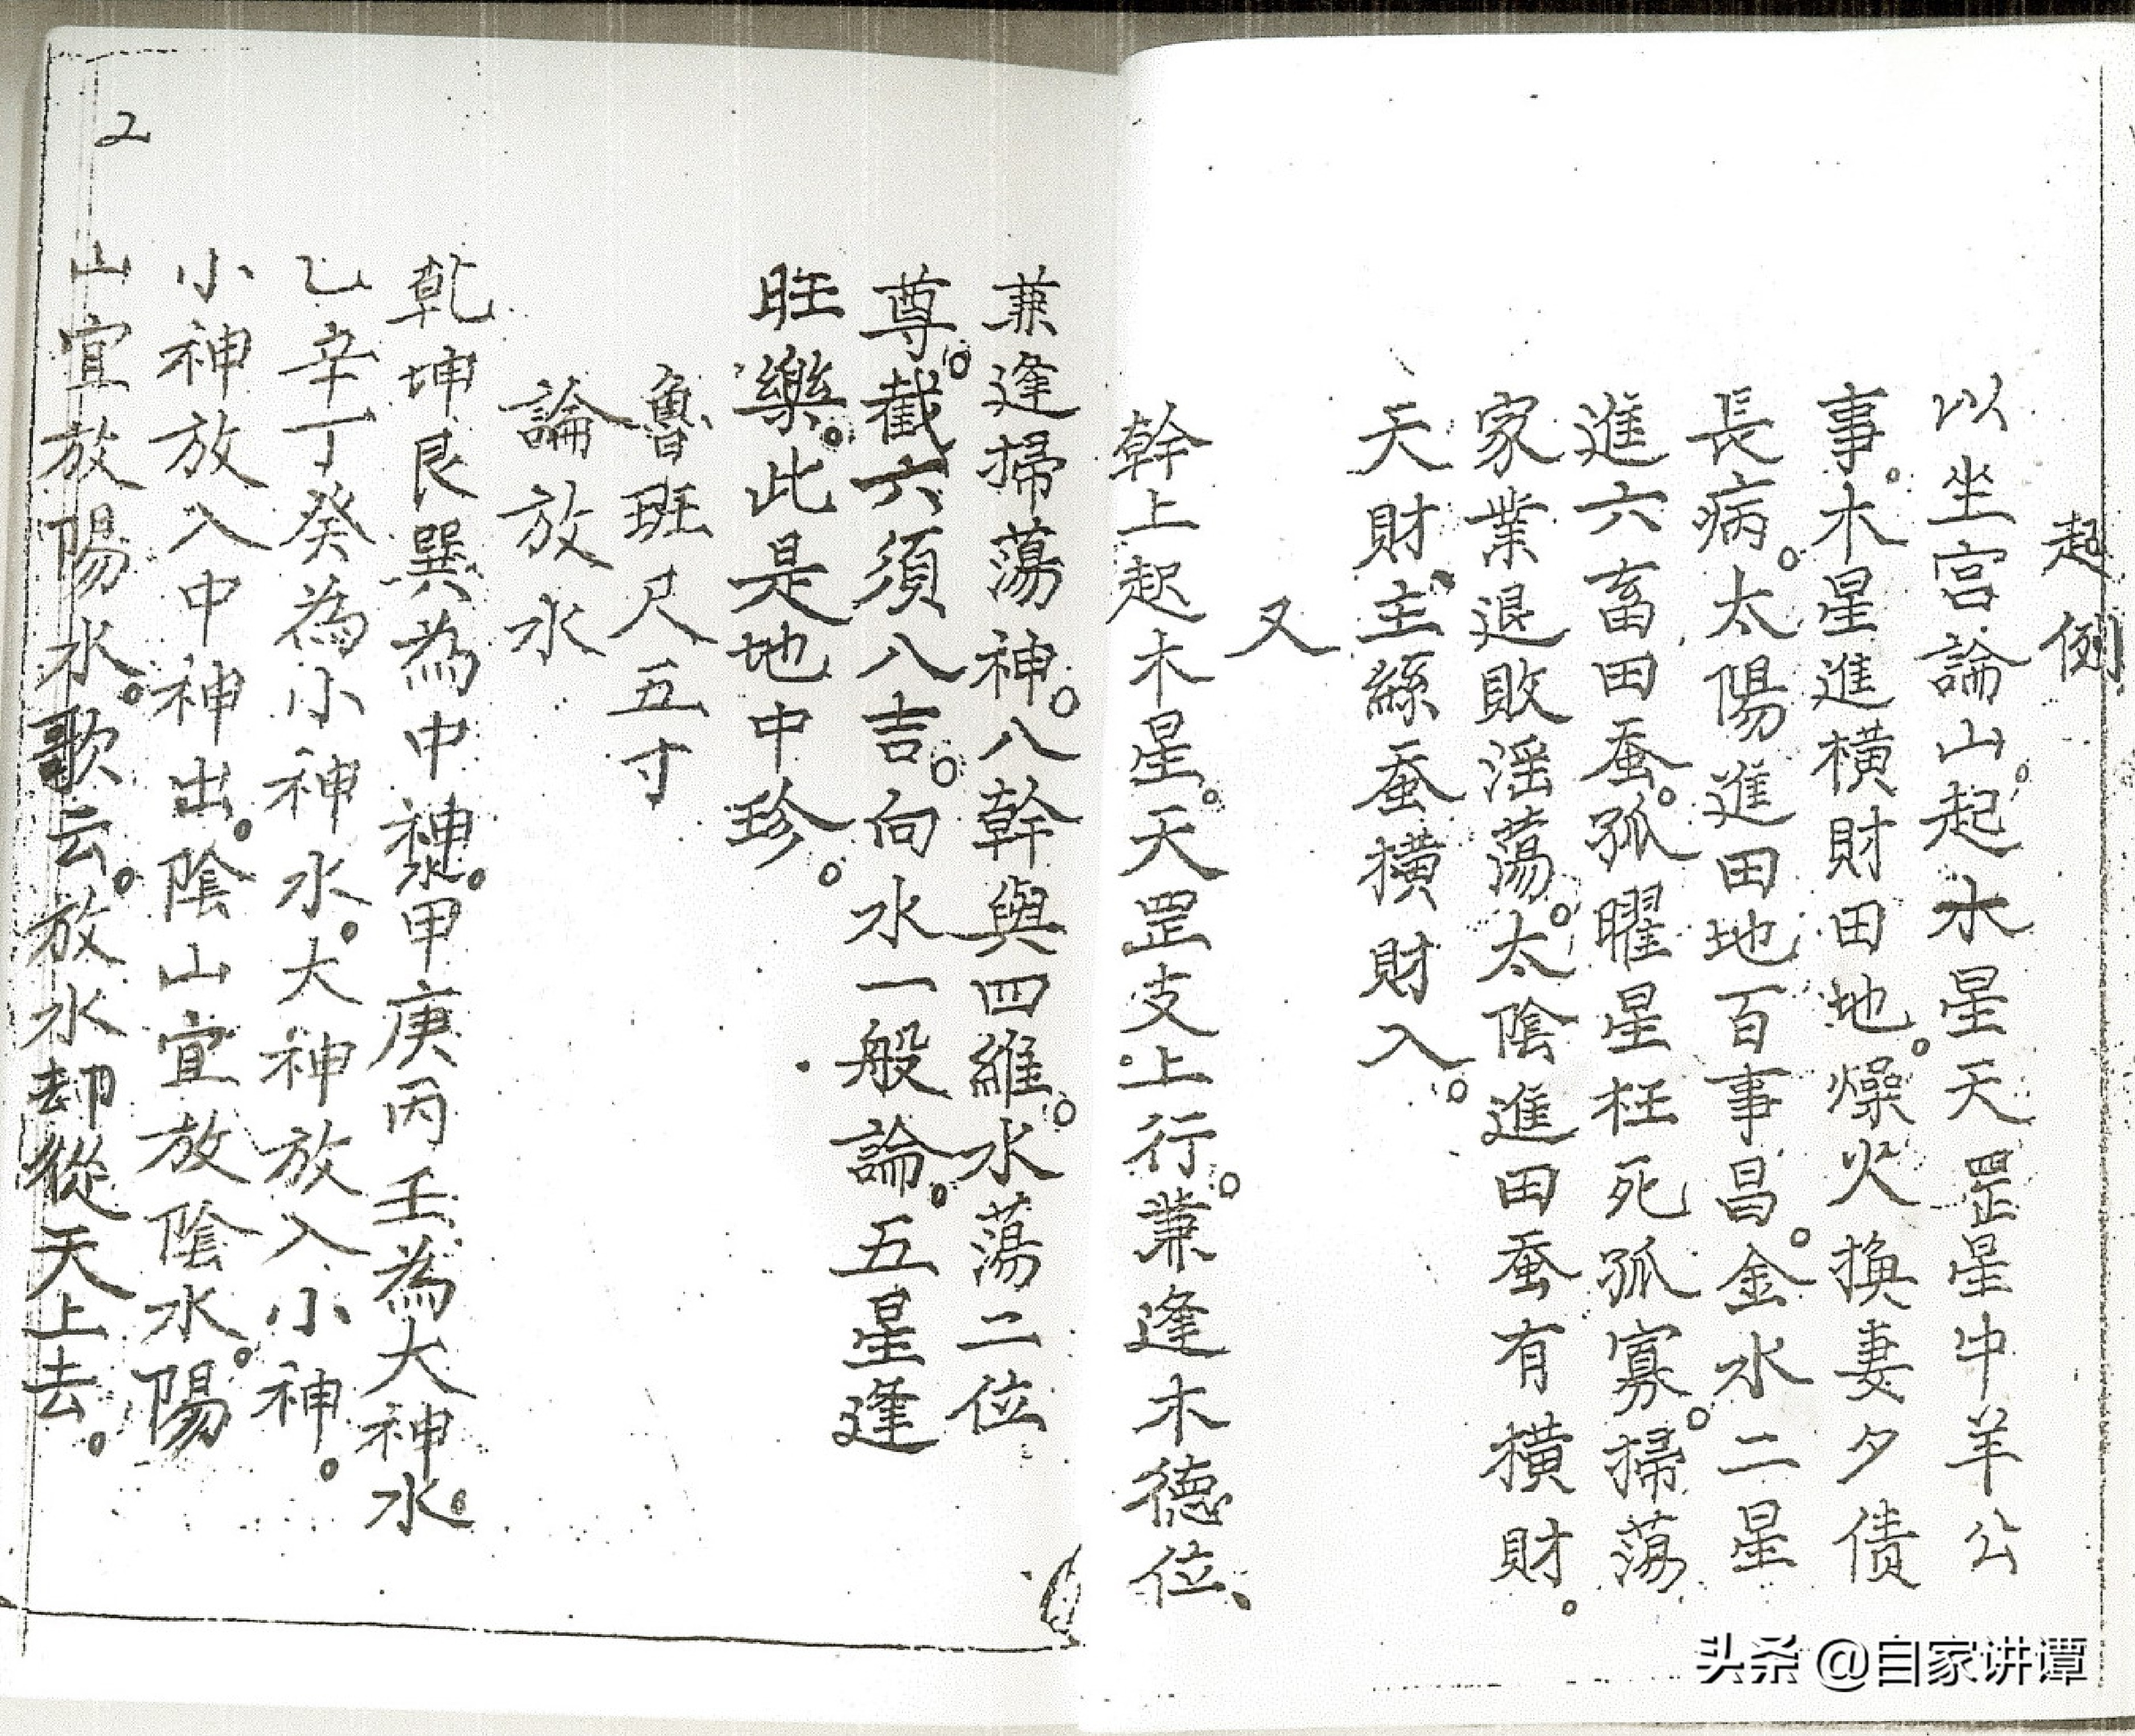 起例
以坐宮論山。起木星天罡星中羊公
事。木星進横財田地。燥火換妻夕债
長病。太陽進田地百事昌。金水二星
進六畜田蚕。孤曜星枉死孤寡。掃荡
家業退敗滛蕩。太陰進田蚕有横財。
天財主絲蚕横財入。
又
幹上起木星。天罡支上行。蒹逢木德位、
蒹逢掃蕩神。八幹與四維。水荡二位
尊。截六須八吉。向水一般論。五星逢
旺樂。此是地中珍。
魯班尺五寸
論放水
乾坤艮巽為中神水。甲庚丙壬為大神水。
乙辛丁癸為小神水。大神放入小神。
小神放入中神出。陰山宜放陰水。陽
山宜放陽水。歌云。放水却從天上去。
2
头杀 @自家讲谭